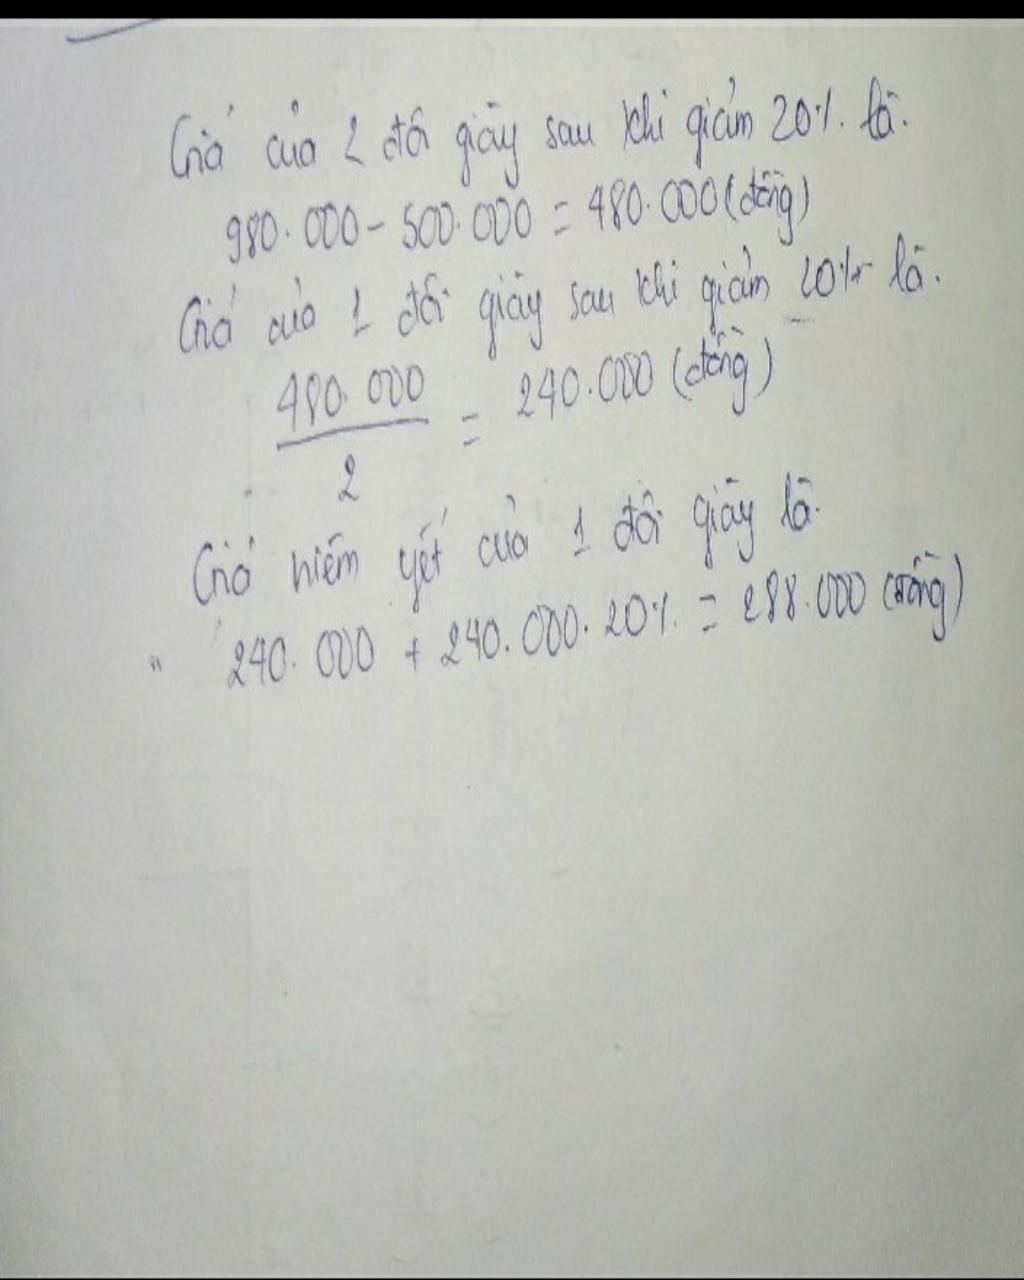 Giá của 2 đôi giày sau khi giảm 20% là.
980.000 - 500.000 = 480.000 (đồng)
Giá của 1 đôi giày sau khi giảm 20% là.
480.000 / 2 = 240.000 (đồng)
Giá niêm yết của 1 đôi giày là.
240.000 + 240.000 . 20% = 288.000 (đồng)